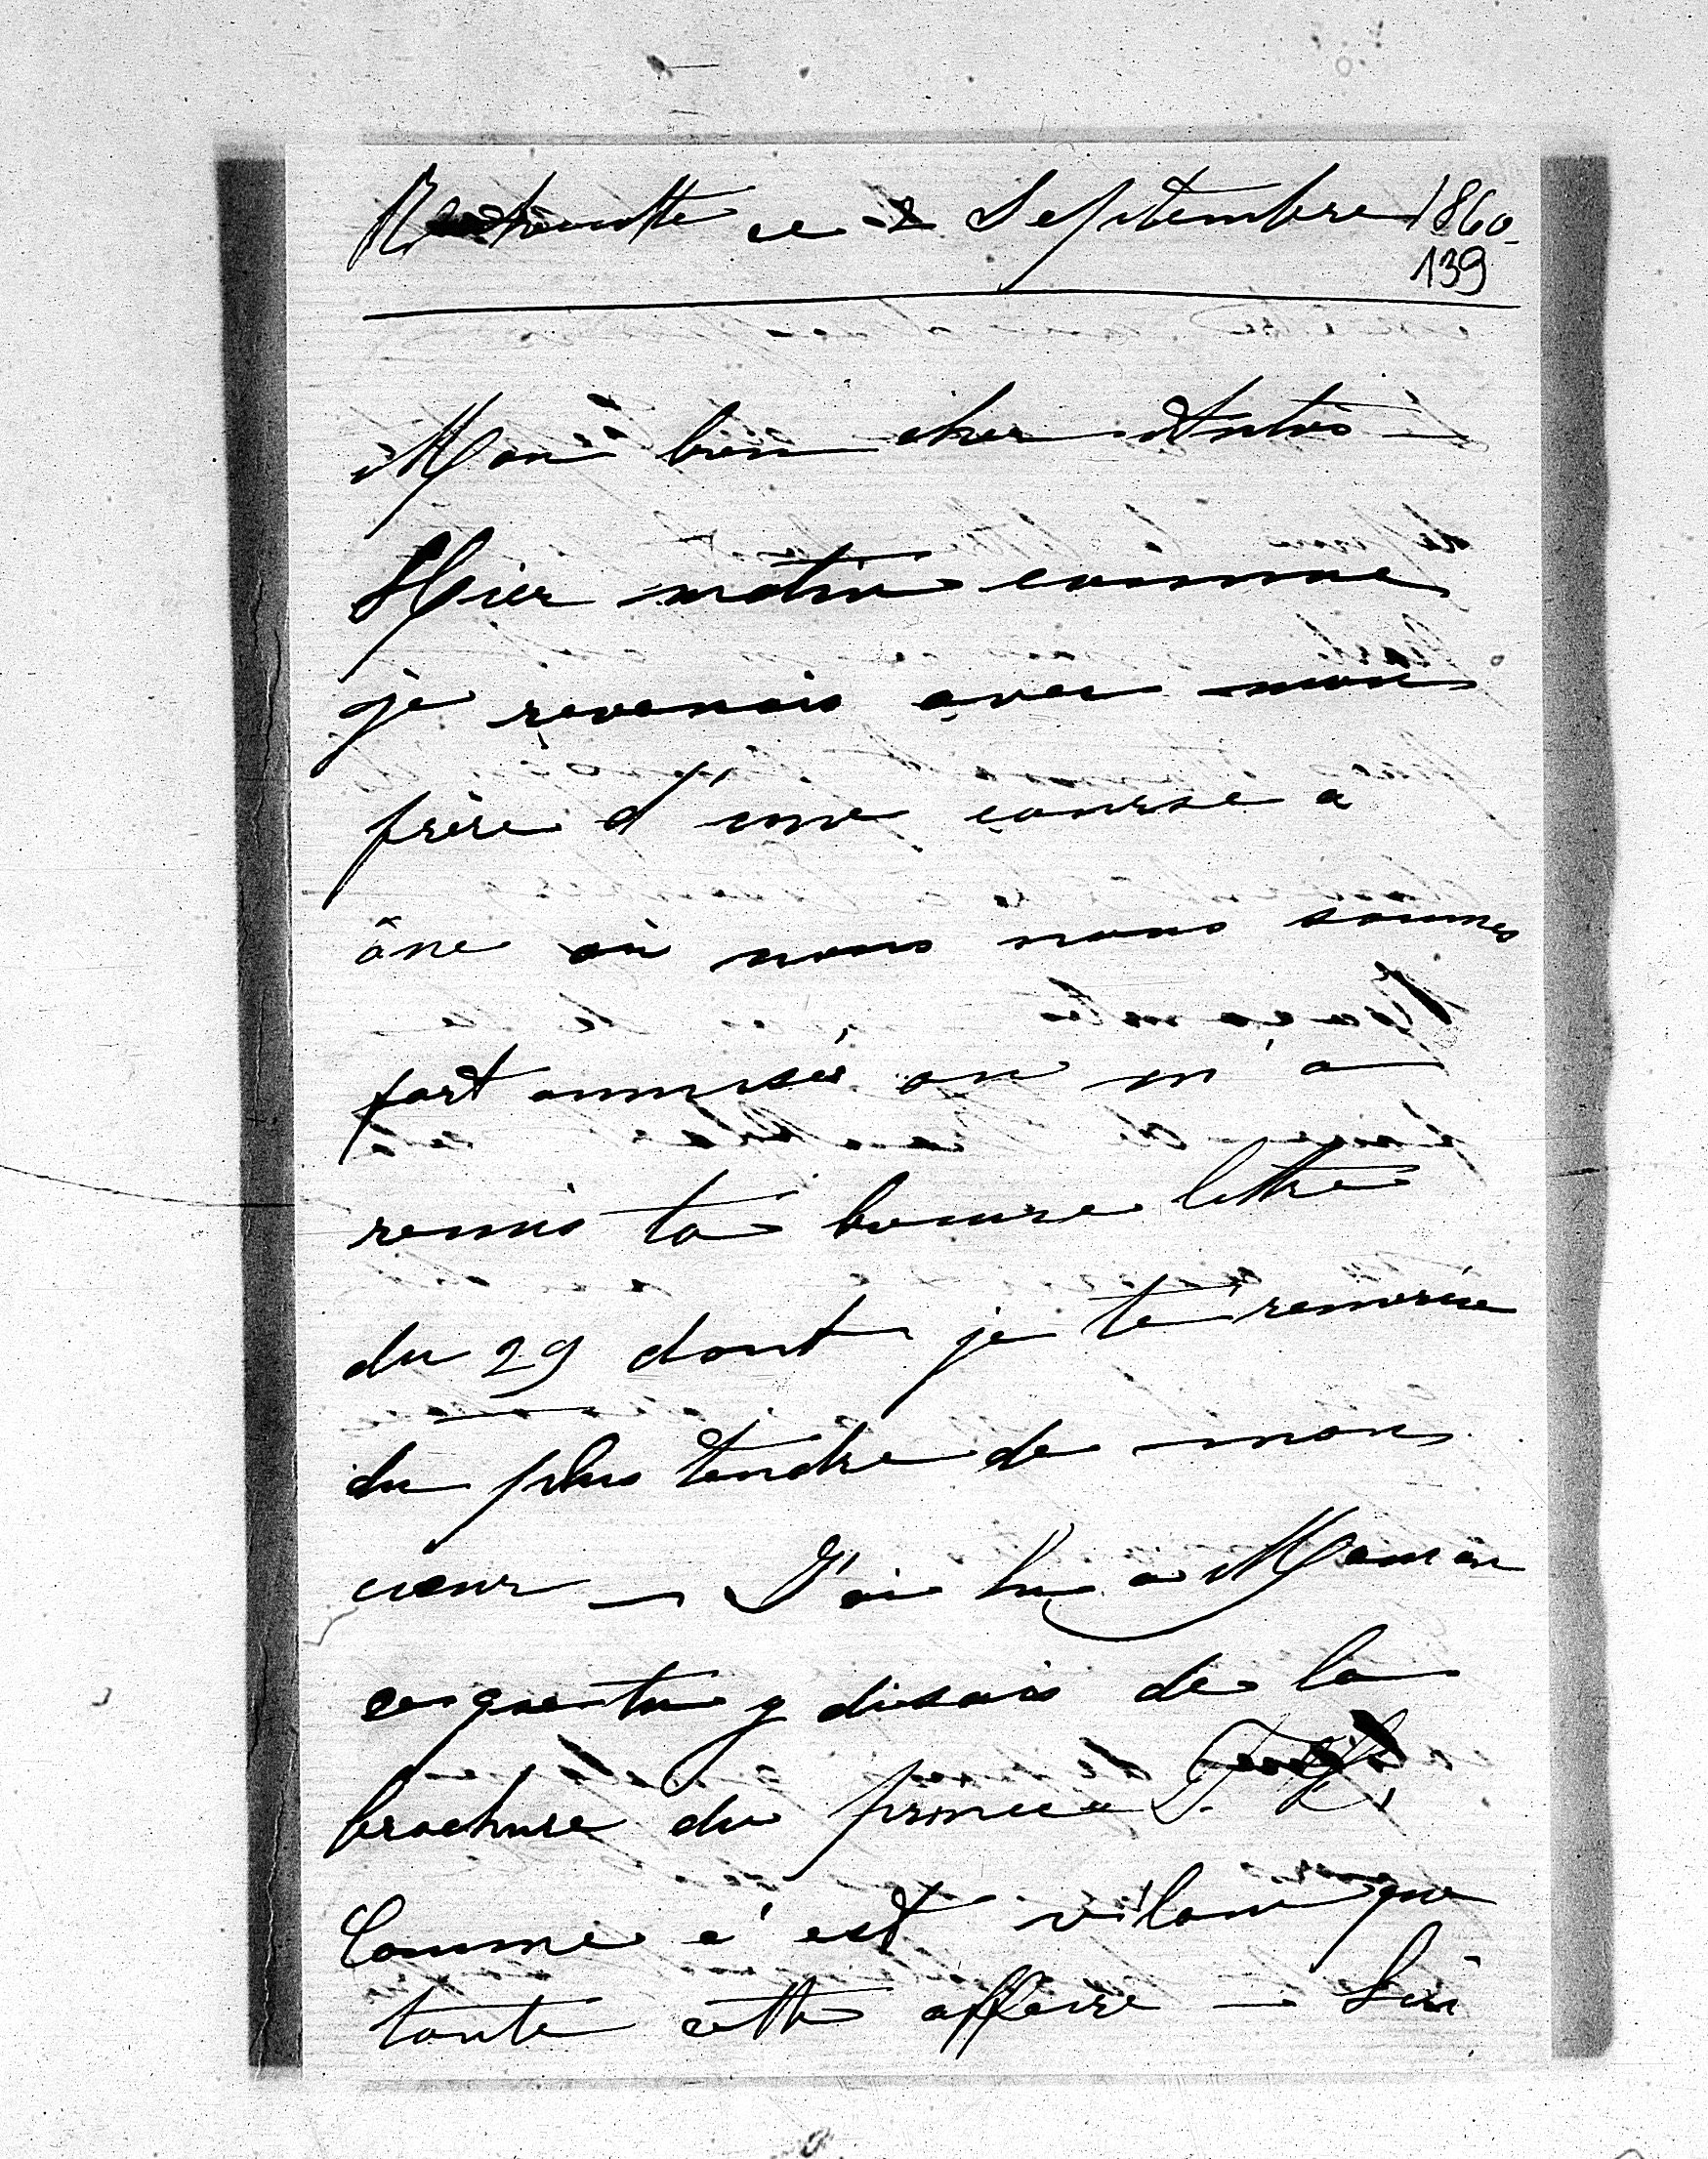 ce 2 Septembre 1860
139
Mon bien cher
Hier matin comme
je revenais avec mon
frère d'une course à
âne où nous nous sommes
fort amusés on m'a
remis ta bonne lettre
du 29 dont je te remercie
du plus tendre de mon
cœur – J'ai lu a Maman
ce que tu y disais de la
brochure du prince
Comme c'est vilain que
toute cette affaire –